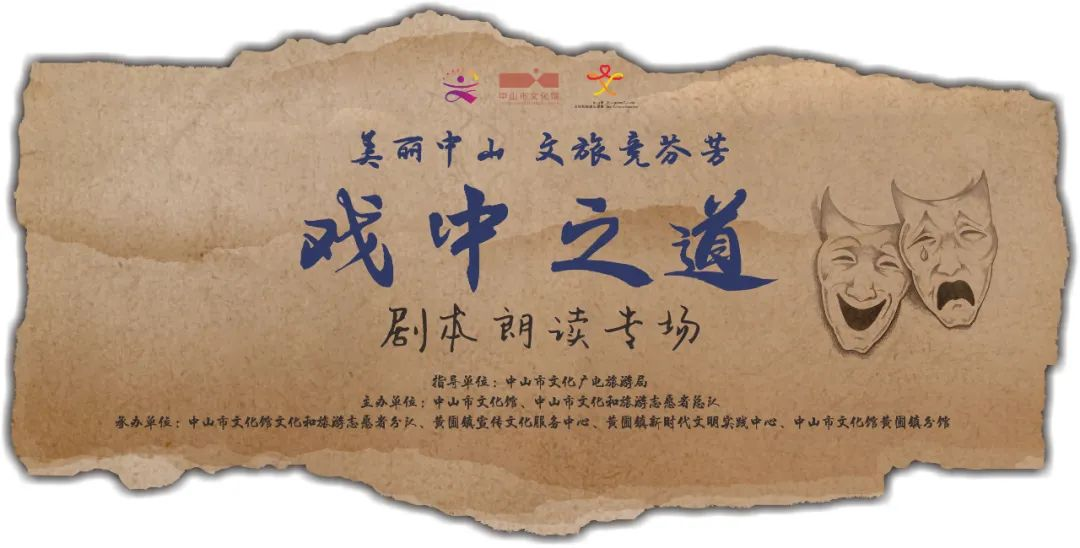 中山市文化馆
美丽中山 文旅竞芬芳
戏中之道
剧本朗读专场
指导单位：中山市文化广电旅游局
主办单位：中山市文化馆、中山市文化和旅游志愿者总队
承办单位：中山市文化馆文化和旅游志愿者分队、黄圃镇宣传文化服务中心、黄圃镇新时代文明实践中心、中山市文化馆黄圃镇分馆